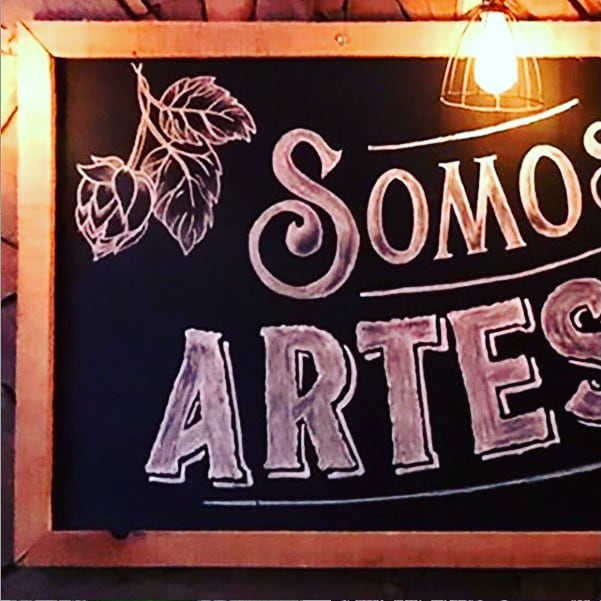 SOMOS
ARTES